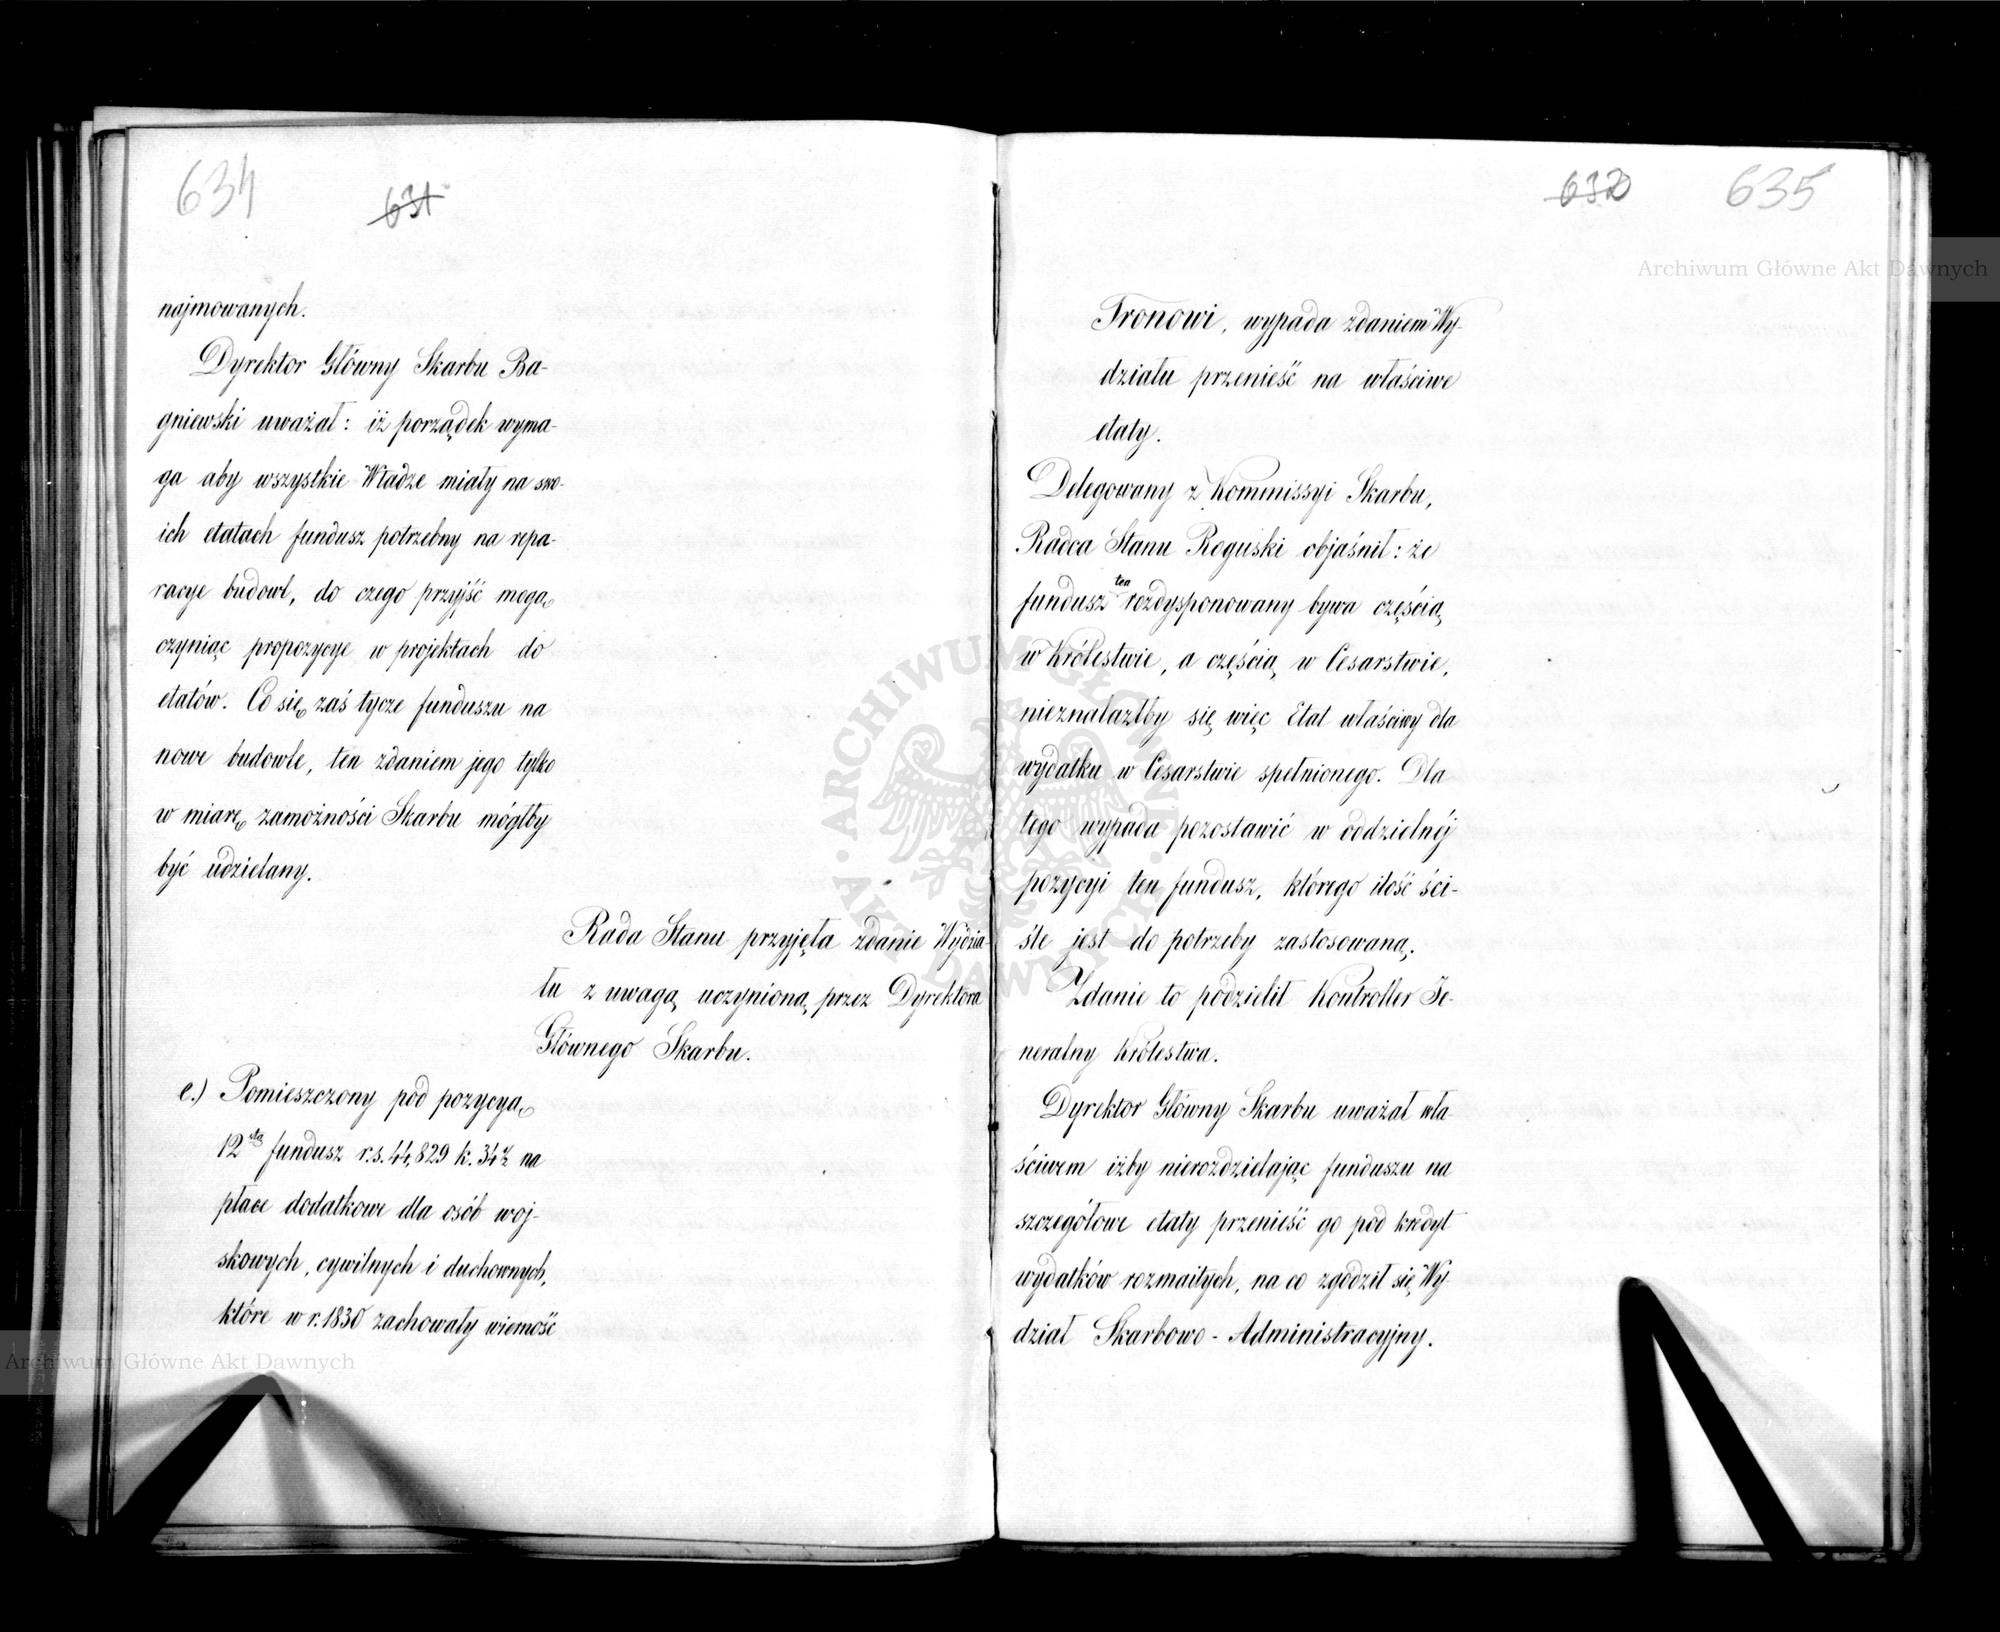 634
631
najmowanych.
Dyrektor Główny Skarbu Ba-
gniewski uważał: iż porządek wyma-
ga aby wszystkie Władze miały na swo-
ich etatach fundusz potrzebny na repa-
racye budowl, do czego przyjść mogą
czyniąc propozycye w projektach do
etatów. Co się zaś tycze funduszu na
nowe budowle, ten zdaniem jego tylko
w miarę zamożności Skarbu mógłby
być udzielany.
Rada Stanu przyjęła zdanie Wydzia-
łu z uwagą uczynioną przez Dyrektora
Głównego Skarbu.
e.) Pomieszczony pod pozycyą
12stą fundusz r.s. 44,829 k. 34½ na
płace dodatkowe dla osób woj-
skowych, cywilnych i duchownych,
które w r. 1830 zachowały wierność
632
635
Tronowi, wypada zdaniem Wy-
działu przenieść na właściwe
etaty.
Delegowany z Kommissyi Skarbu,
Radca Stanu Roguski objaśnił: że
fundusz ten rozdysponowany bywa częścią
w Królestwie, a częścią w Cesarstwie,
nieznalazłby się więc Etat właściwy dla
wydatku w Cesarstwie spełnionego. Dla
tego wypada pozostawić w oddzielnéj
pozycyi ten fundusz, którego ilość ści-
śle jest do potrzeby zastosowaną.
Zdanie to podzielił Kontroller Je-
neralny Królestwa.
Dyrektor Główny Skarbu uważał wła
ściwem iżby nierozdzielając funduszu na
szczegółowe etaty przenieść go pod kredyt
wydatków rozmaitych, na co zgodził się Wy-
dział Skarbowo-Administracyjny.
Archiwum Główne Akt Dawnych
ARCHIWUM GŁÓWNE AKT DAWNYCH
Archiwum Główne Akt Dawnych